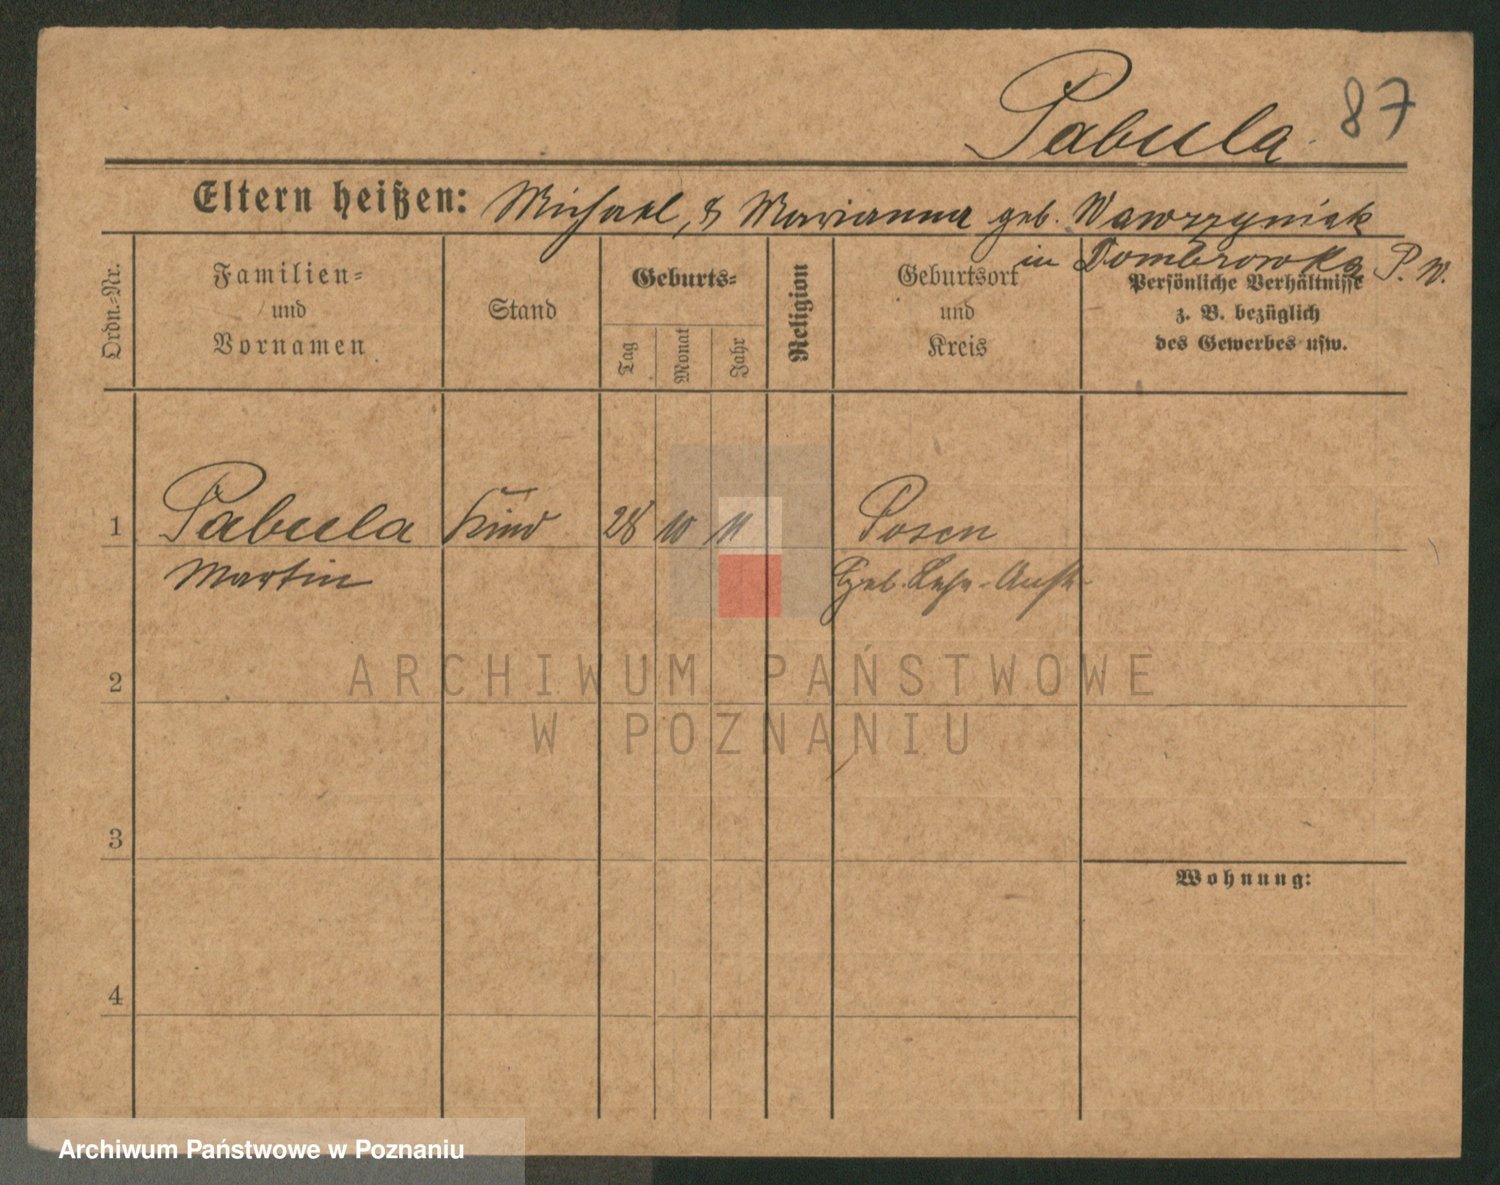 Pabula 87
Eltern heißen: Michael, & Marianna geb. Wawrzyniak
in Dombrowka P. W.
Ordn.-Nr.
Familien-
und
Vornamen
Stand
Geburts-
Tag
Monat
Jahr
Religion
Geburtsort
und
Kreis
Persönliche Verhältnisse
z. B. bezüglich
des Gewerbes usw.
1 Pabula Kind 28 10 11 Posen
Martin Heb. Lehr-Anst.
2
ARCHIWUM PAŃSTWOWE
W POZNANIU
3
Wohnung:
4
Archiwum Państwowe w Poznaniu